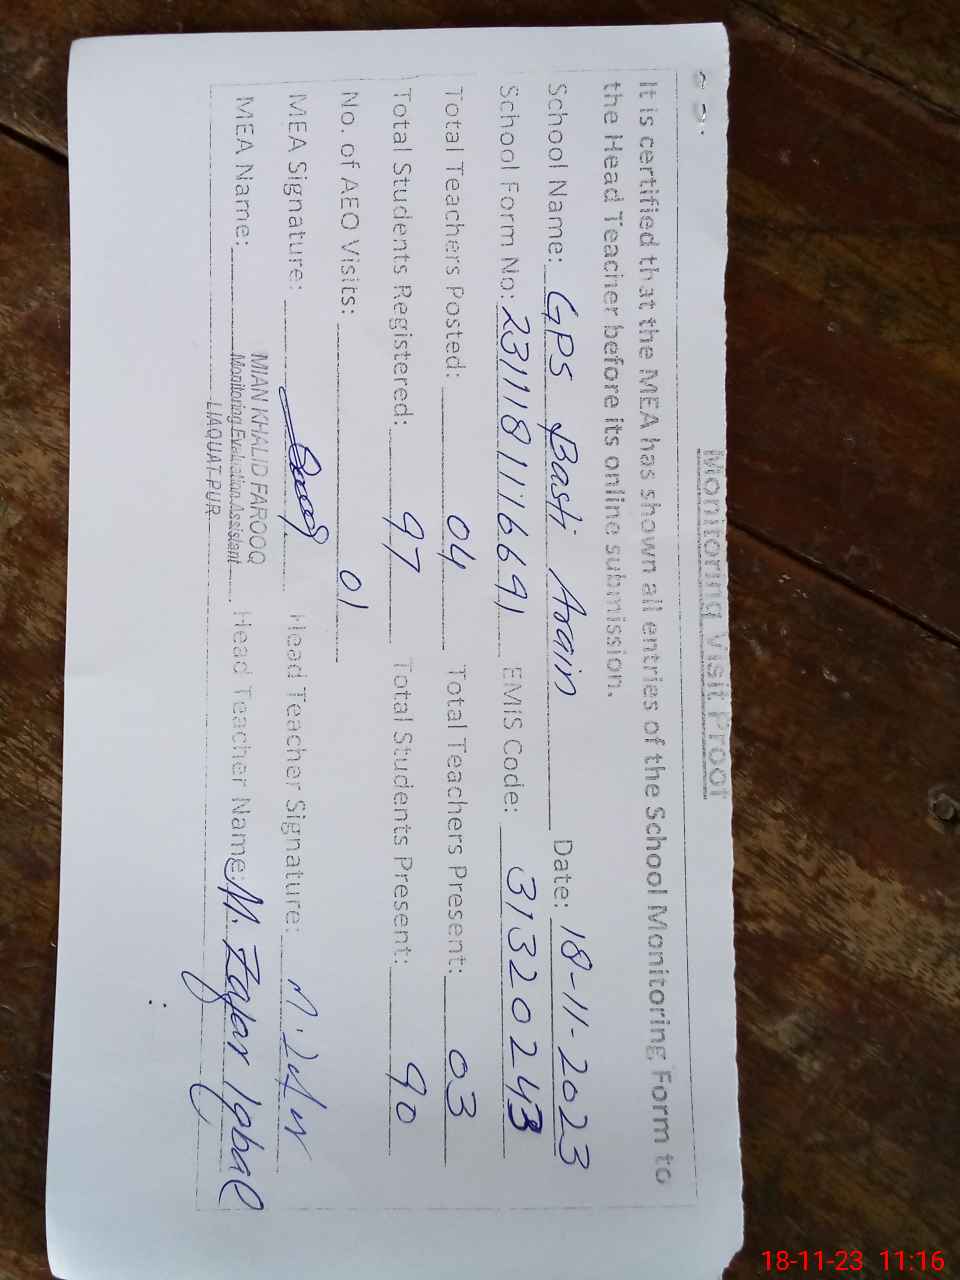 Monitoring Visit Proof
It is certified that the MEA has shown all entries of the School Monitoring Form to
the Head Teacher before its online submission.
School Name: GPS Basti Arain Date: 18-11-2023
School Form No: 23111811116691 EMIS Code: 31320243
Total Teachers Posted: 04 Total Teachers Present: 03
Total Students Registered: 97 Total Students Present: 90
No. of AEO Visits: 01
MEA Signature: Head Teacher Signature:
MIAN KHALID FAROOQ
MEA Name: Monitoring Evaluation Assistant Head Teacher Name: M. Zafar Iqbal
LIAQUAT PUR
18-11-23 11:16